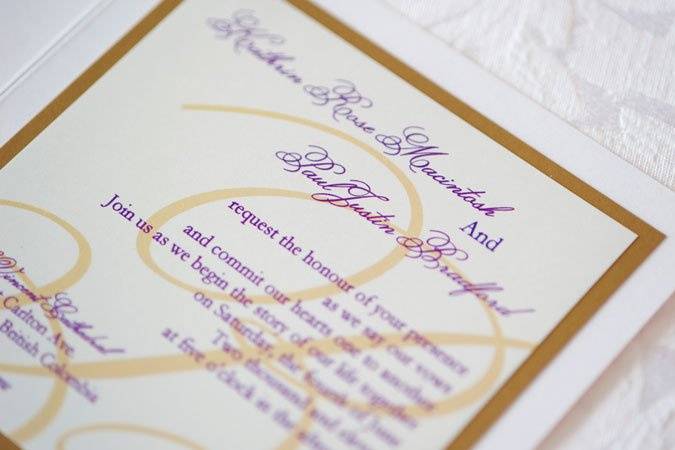 Kathrin Rose Macintosh
And
Paul Justin Bradford
request the honour of your presence
as we say our vows
and commit our hearts one to another
Join us as we begin the story of our life together
on Saturday, the of June
Two thousand and
at five o'clock in the
Vincent Cathedral
Carlton Ave.
British Columbia